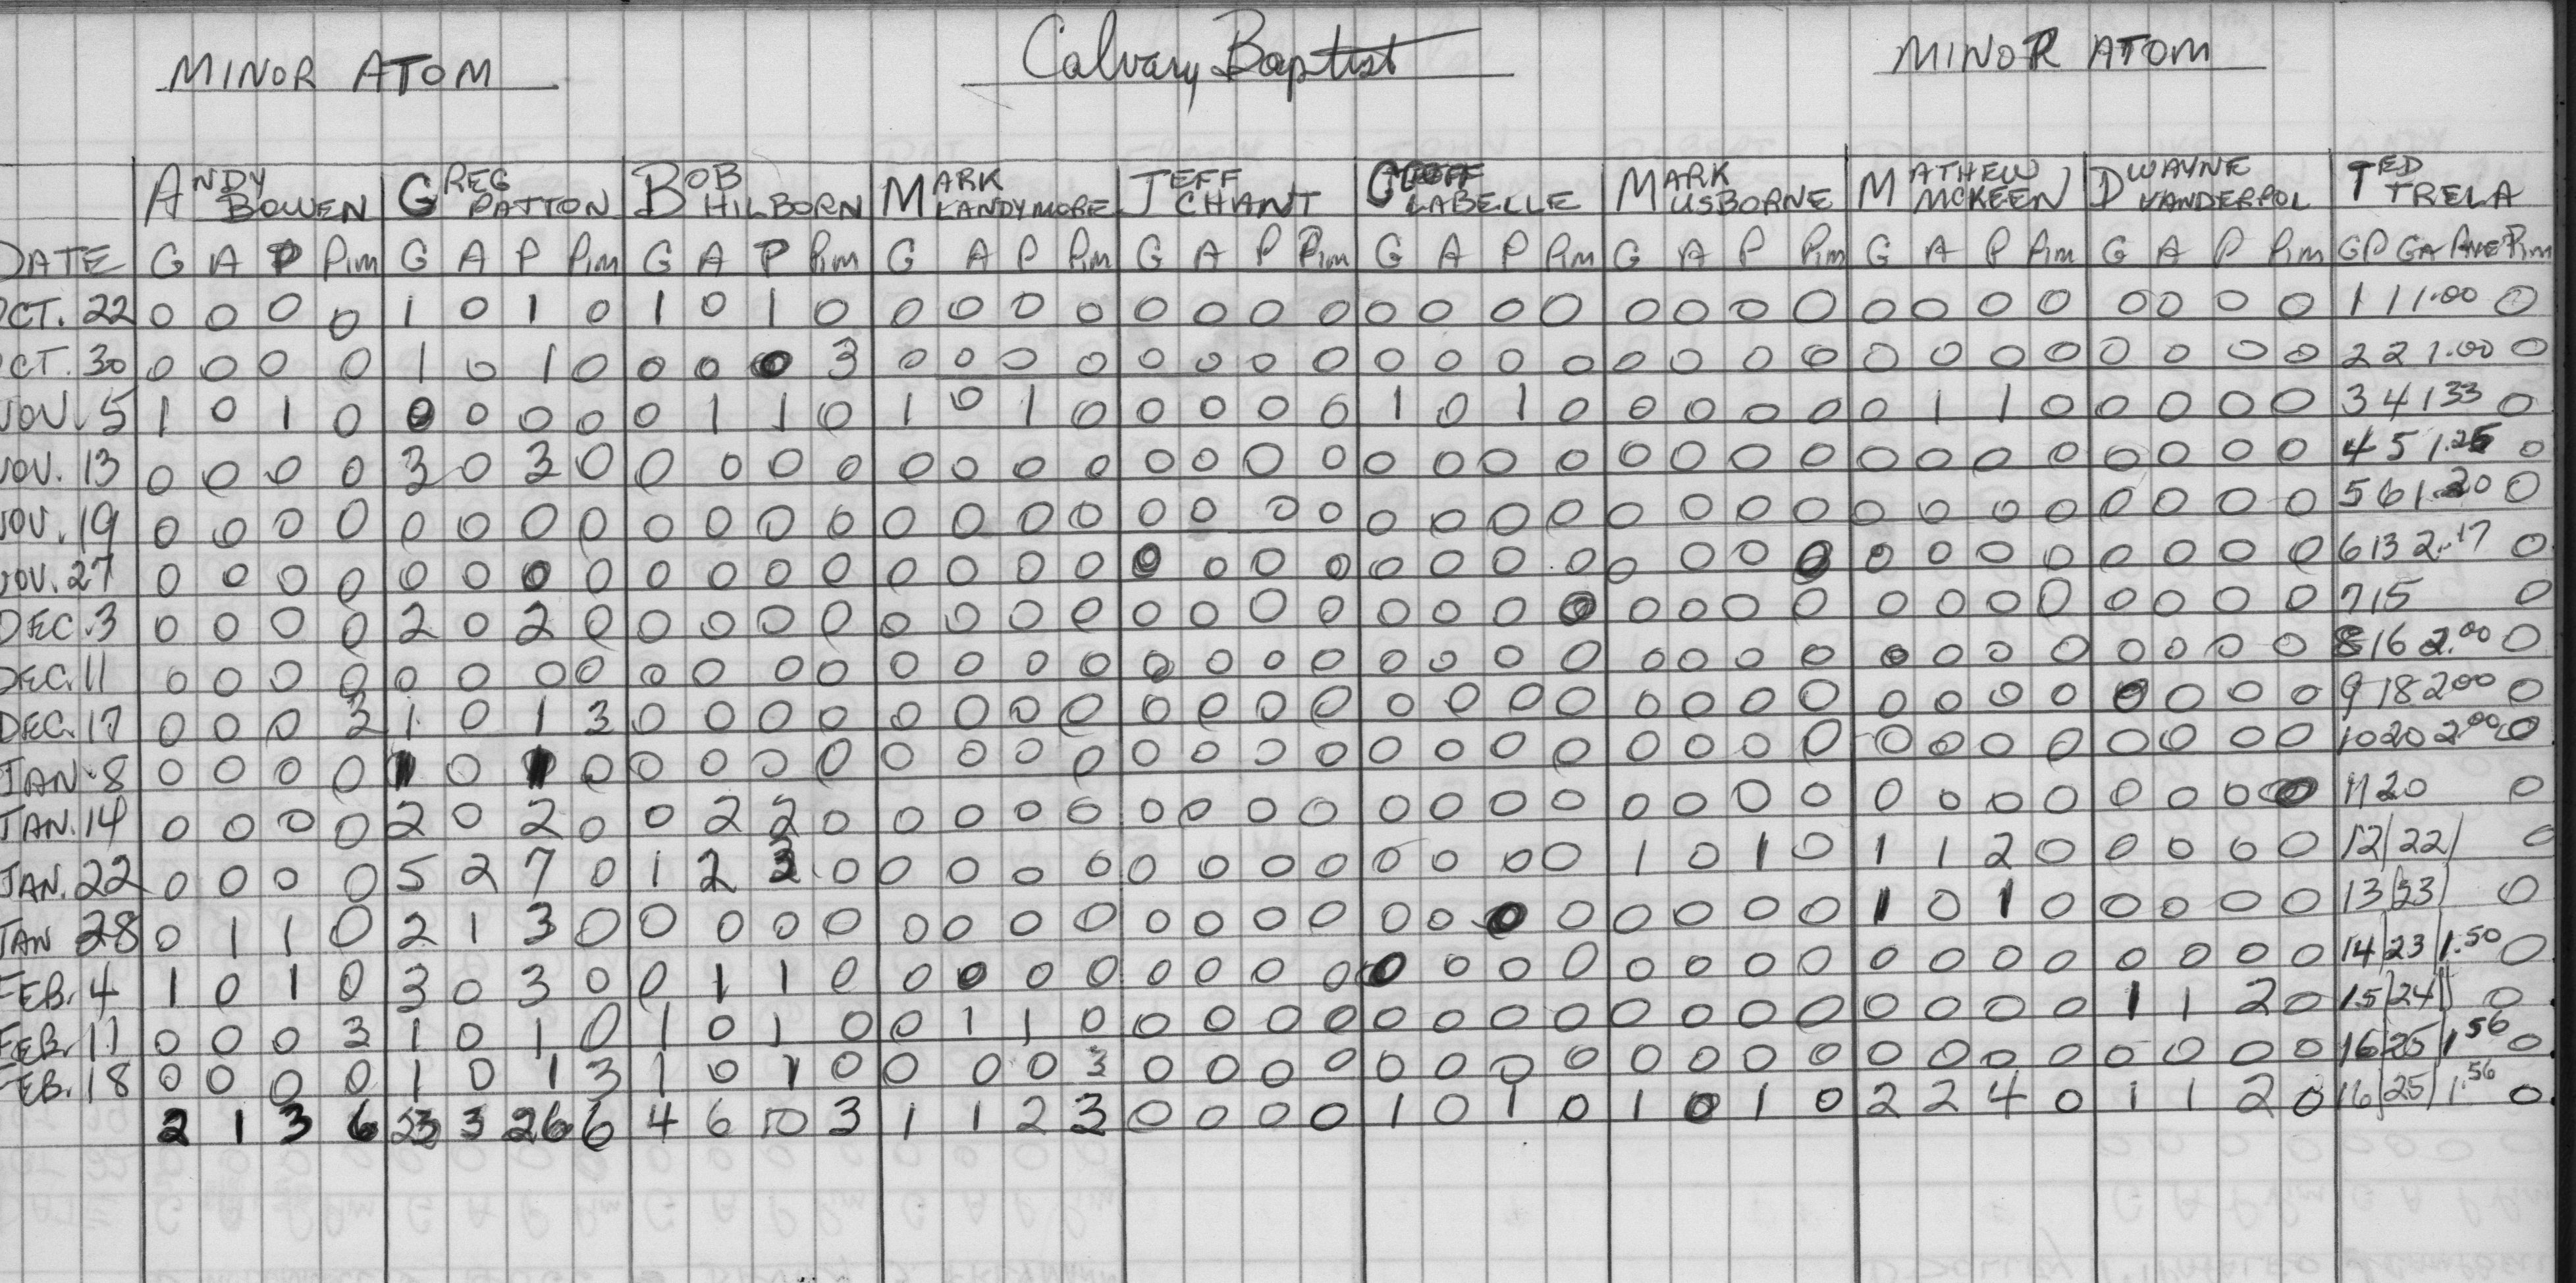 MINOR ATOM Calvary Baptist MINOR ATOM
ANDY BOWEN GREG PATTON BOB HILBORN MARK LANDYMORE JEFF CHANT LABELLE MARK USBORNE MATHEW MCKEEN DWAYNE VANDERPOL TED TRELA
DATE G A P Pim G A P Pim G A P Pim G A P Pim G A P Pim G A P Pim G A P Pim G A P Pim G A P Pim GP GA AVE Pim
OCT. 22 0 0 0 0 1 0 1 0 1 0 1 0 0 0 0 0 0 0 0 0 0 0 0 0 0 0 0 0 0 0 0 0 0 0 0 0 1 1 1.00 0
OCT. 30 0 0 0 0 1 0 1 0 0 0 0 3 0 0 0 0 0 0 0 0 0 0 0 0 0 0 0 0 0 0 0 0 0 0 0 0 2 2 1.00 0
NOV. 5 1 0 1 0 0 0 0 0 0 1 1 0 1 0 1 0 0 0 0 0 1 0 1 0 0 0 0 0 0 1 1 0 0 0 0 0 3 4 1 33 0
NOV. 13 0 0 0 0 3 0 3 0 0 0 0 0 0 0 0 0 0 0 0 0 0 0 0 0 0 0 0 0 0 0 0 0 0 0 0 0 4 5 1.25 0
NOV. 19 0 0 0 0 0 0 0 0 0 0 0 0 0 0 0 0 0 0 0 0 0 0 0 0 0 0 0 0 0 0 0 0 0 0 0 0 5 6 1.20 0
NOV. 27 0 0 0 0 0 0 0 0 0 0 0 0 0 0 0 0 0 0 0 0 0 0 0 0 0 0 0 0 0 0 0 0 0 0 0 0 6 13 2.17 0
DEC. 3 0 0 0 0 2 0 2 0 0 0 0 0 0 0 0 0 0 0 0 0 0 0 0 0 0 0 0 0 0 0 0 0 0 0 0 0 7 15 0
DEC. 11 0 0 0 0 0 0 0 0 0 0 0 0 0 0 0 0 0 0 0 0 0 0 0 0 0 0 0 0 0 0 0 0 0 0 0 0 8 16 2.00 0
DEC. 17 0 0 0 3 1 0 1 3 0 0 0 0 0 0 0 0 0 0 0 0 0 0 0 0 0 0 0 0 0 0 0 0 0 0 0 0 9 18 2 00 0
JAN. 8 0 0 0 0 1 0 1 0 0 0 0 0 0 0 0 0 0 0 0 0 0 0 0 0 0 0 0 0 0 0 0 0 0 0 0 0 10 20 2.00 0
JAN. 14 0 0 0 0 2 0 2 0 0 2 2 0 0 0 0 0 0 0 0 0 0 0 0 0 0 0 0 0 0 0 0 0 0 0 0 0 11 20 0
JAN. 22 0 0 0 0 5 2 7 0 1 2 3 0 0 0 0 0 0 0 0 0 0 0 0 0 1 0 1 0 1 1 2 0 0 0 0 0 12/22/ 0
JAN 28 0 1 1 0 2 1 3 0 0 0 0 0 0 0 0 0 0 0 0 0 0 0 0 0 0 0 0 0 1 0 1 0 0 0 0 0 13/23/ 0
FEB. 4 1 0 1 0 3 0 3 0 0 1 1 0 0 0 0 0 0 0 0 0 0 0 0 0 0 0 0 0 0 0 0 0 0 0 0 0 14/23/1.50 0
FEB. 11 0 0 0 3 1 0 1 0 1 0 1 0 0 1 1 0 0 0 0 0 0 0 0 0 0 0 0 0 0 0 0 0 1 1 2 0 15/24/ 0
FEB. 18 0 0 0 0 1 0 1 3 1 0 1 0 0 0 0 3 0 0 0 0 0 0 0 0 0 0 0 0 0 0 0 0 0 0 0 0 16/25/1 56 0
2 1 3 6 23 3 26 6 4 6 10 3 1 1 2 3 0 0 0 0 1 0 1 0 1 0 1 0 2 2 4 0 1 1 2 0 16/25/1.56 0